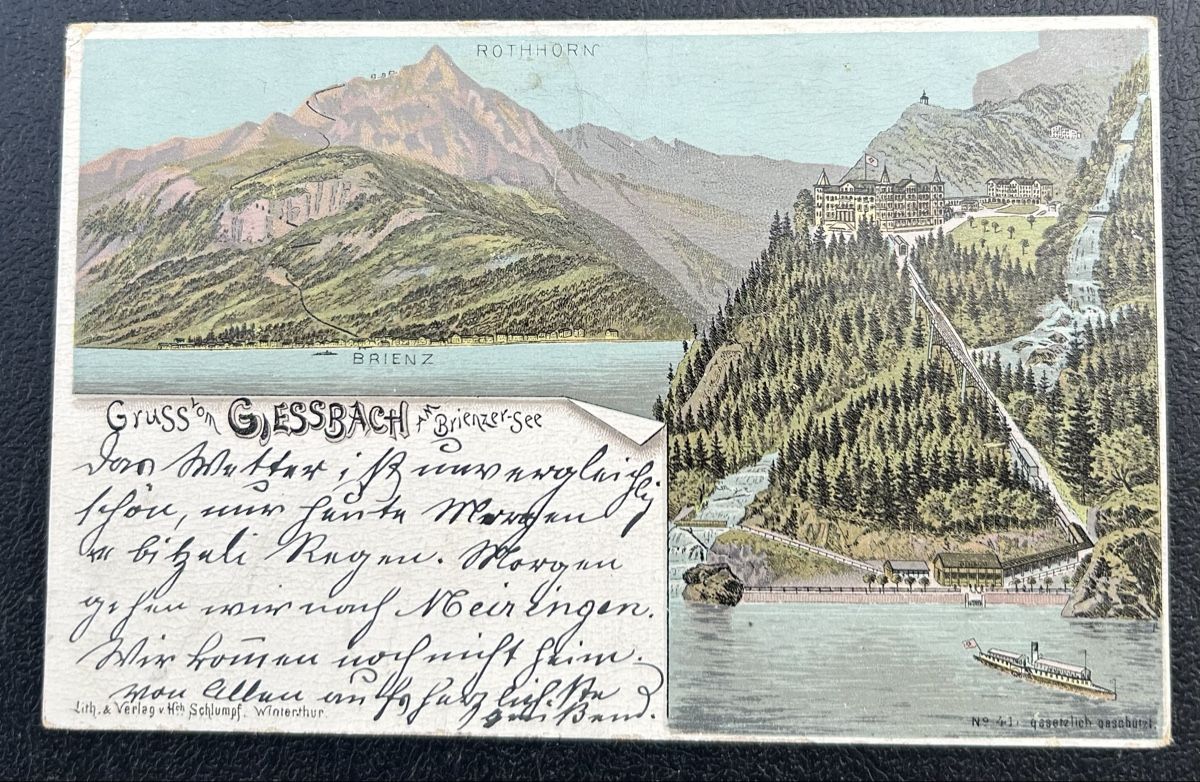 ROTHHORN
BRIENZ
Gruss vom GIESSBACH am Brienzer-See
Das Wetter ist unvergleichlich
schön, nur heute Morgen
bitzeli Regen. Morgen
gehen wir nach Meiringen.
Wir kom̄en noch nicht heim.
von Allen aufs herzlichste
grüßend.
Lith. & Verlag v. Hch Schlumpf. Winterthur
No 41. gesetzlich geschützt